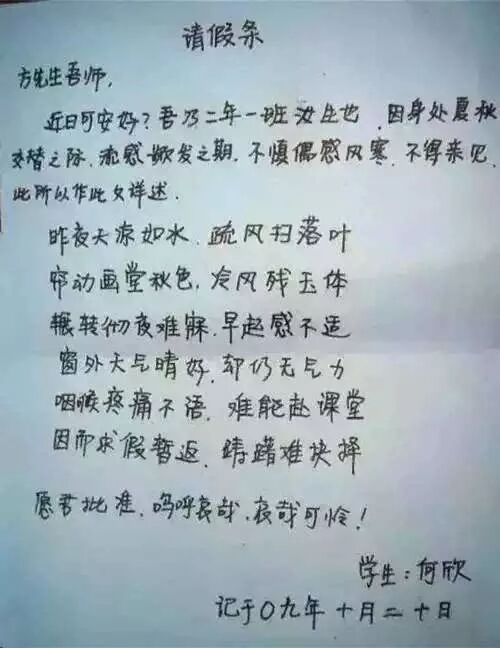 请假条
方先生吾师,
近日可安好?吾乃二年一班汝生也,因身处夏秋
交替之际,流感欲发之期,不慎偶感风寒,不得亲见,
此所以作此文详述.
昨夜天凉如水,疏风扫落叶
帘动画堂秋色,冷风残玉体
辗转彻夜难寐,早起感不适
窗外天气晴好,却仍无气力
咽喉疼痛不语,难能赴课堂
因而求假暂返,踌躇难抉择
愿君批准,呜呼哀哉,哀哉可怜!
学生:何欣
记于〇九年十月二十日